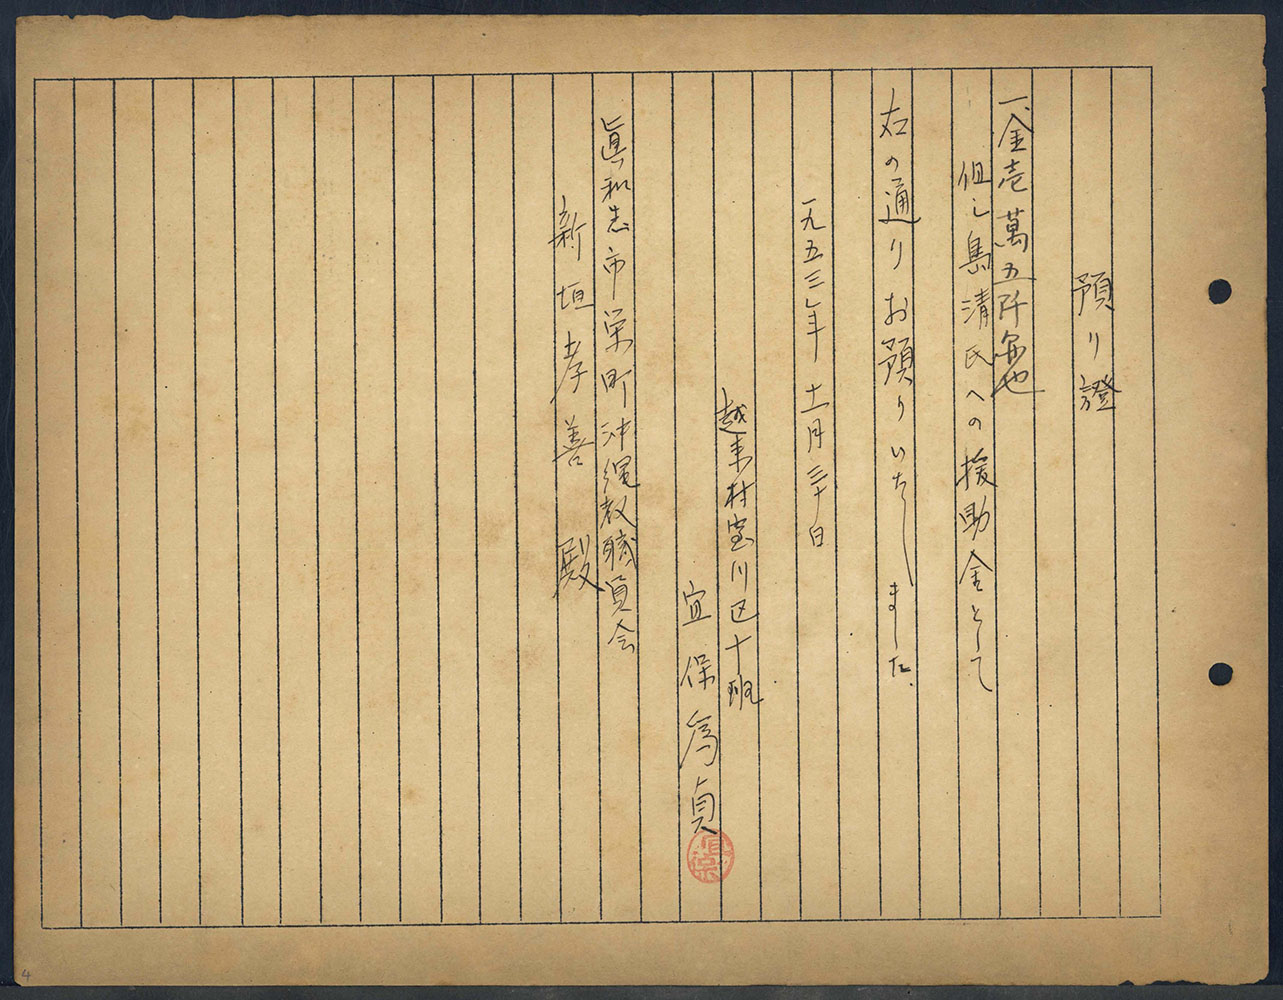 預り證
一、金壱萬五阡円也
但し島清氏への援助金として
右の通りお預りいたしました。
一九五三年十一月三十日
越来村室川区十班
宜保為貞
宜保
眞和志市栄町沖縄教職員会
新垣孝善殿
4